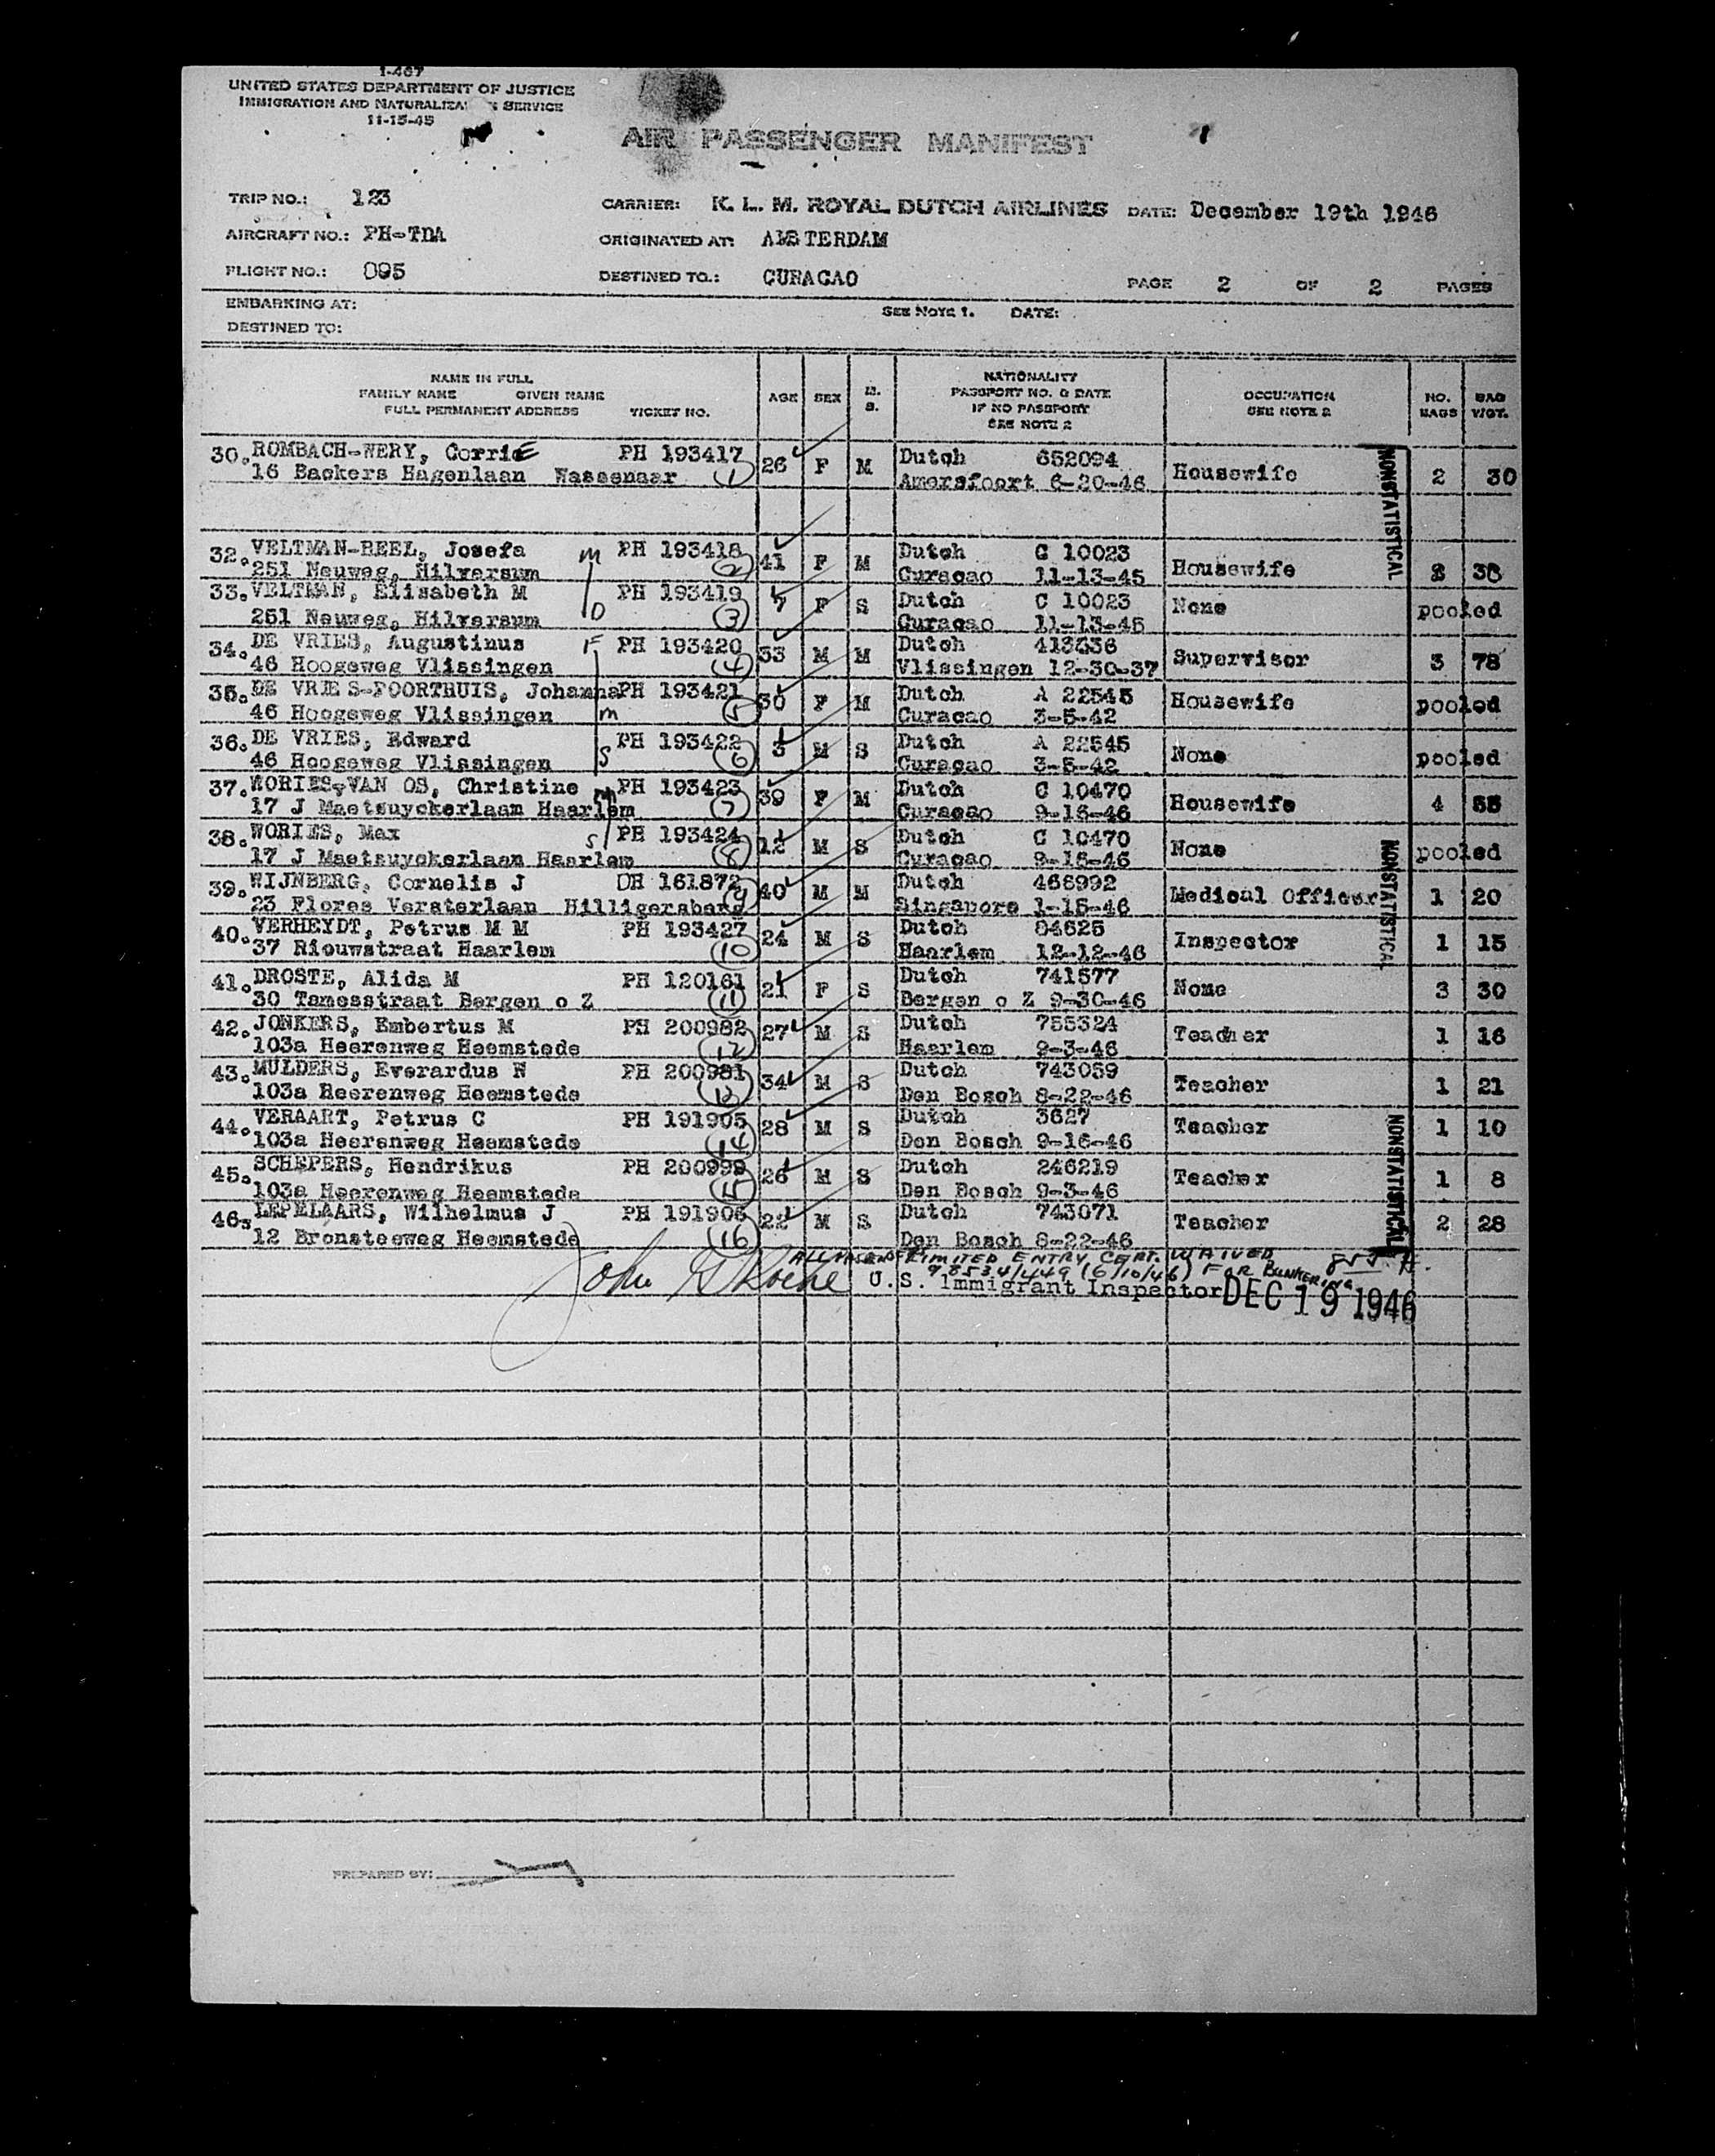 1-467
UNITED STATES DEPARTMENT OF JUSTICE
IMMIGRATION AND NATURALIZATION SERVICE
11-15-45
AIR PASSENGER MANIFEST
TRIP NO.: 123 CARRIER: K. L. M. ROYAL DUTCH AIRLINES DATE: December 19th 1946
AIRCRAFT NO.: PH-TDA ORIGINATED AT: AMSTERDAM
FLIGHT NO.: 095 DESTINED TO.: CURACAO PAGE 2 OF 2 PAGES
EMBARKING AT: SEE NOTE 1. DATE:
DESTINED TO:
NAME IN FULL
FAMILY NAME GIVEN NAME
FULL PERMANENT ADDRESS TICKET NO. AGE SEX M. S. NATIONALITY PASSPORT NO. & DATE IF NO PASSPORT SEE NOTE 2 OCCUPATION SEE NOTE 2 NO. BAGS BAG WGT.
30. ROMBACH-WERY, CorriE PH 193417 26 F M Dutch 652094 Housewife 2 30
16 Backers Hagenlaan Wassenaar 1 Amersfoort 6-20-46
32. VELTMAN-REEL, Josefa M PH 193418 41 F M Dutch C 10023 Housewife 38
251 Neuweg, Hilversum 2 Curacao 11-13-45
33. VELTMAN, Elisabeth M PH 193419 7 F S Dutch C 10023 None pooled
251 Neuweg, Hilversum D 3 Curacao 11-13-45
34. DE VRIES, Augustinus F PH 193420 33 M M Dutch Supervisor 3 78
46 Hoogeweg Vlissingen 4 Vlissingen 12-30-37
35. DE VRIES-POORTHUIS, Johanna PH 193421 30 F M Dutch A 22545 Housewife pooled
46 Hoogeweg Vlissingen M 5 Curacao 3-5-42
36. DE VRIES, Edward PH 193422 3 M S Dutch A 22545 None pooled
46 Hoogeweg Vlissingen S 6 Curacao 3-5-42
37. WORIES-VAN OS, Christine M PH 193423 39 F M Dutch C 10470 Housewife 4 55
17 J Maetsuyckerlaan Haarlem 7 Curacao 9-16-46
38. WORIES, Max S PH 193424 12 M S Dutch C 10470 None pooled
17 J Maetsuyckerlaan Haarlem 8 Curacao 9-16-46
39. WIJNBERG, Cornelis J DH 161872 40 M M Dutch 466992 Medical Officer 1 20
23 Flores Versterlaan Hilligersberg 9 Singapore 1-15-46
40. VERHEYDT, Petrus M M PH 193427 24 M S Dutch 84625 Inspector 1 15
37 Riouwstraat Haarlem 10 Haarlem 12-12-46
41. DROSTE, Alida M PH 120161 21 F S Dutch 741577 None 3 30
30 Tamesstraat Bergen o Z 11 Bergen o Z 9-30-46
42. JONKERS, Embertus M PH 200982 27 M S Dutch 755324 Teacher 1 16
103a Heerenweg Heemstede 12 Haarlem 9-3-46
43. MULDERS, Everardus W PH 200981 34 M S Dutch 743059 Teacher 1 21
103a Heerenweg Heemstede 13 Den Bosch 8-22-46
44. VERAART, Petrus C PH 191905 28 M S Dutch 3627 Teacher 1 10
103a Heerenweg Heemstede 14 Den Bosch 9-16-46
45. SCHEPERS, Hendrikus PH 200999 26 M S Dutch 246219 Teacher 1 8
103a Heerenweg Heemstede 15 Den Bosch 9-3-46
46. LEPELAARS, Wilhelmus J PH 191906 22 M S Dutch 743071 Teacher 2 28
12 Bronsteeweg Heemstede 16 Den Bosch 8-22-46
NONSTATISTICAL
NONSTATISTICAL
NONSTATISTICAL
LIMITED ENTRY CERT. WAIVED
98534/449 (6/10/46) FOR BUNKERING
John U.S. Immigrant Inspector DEC 19 1946
PREPARED BY: